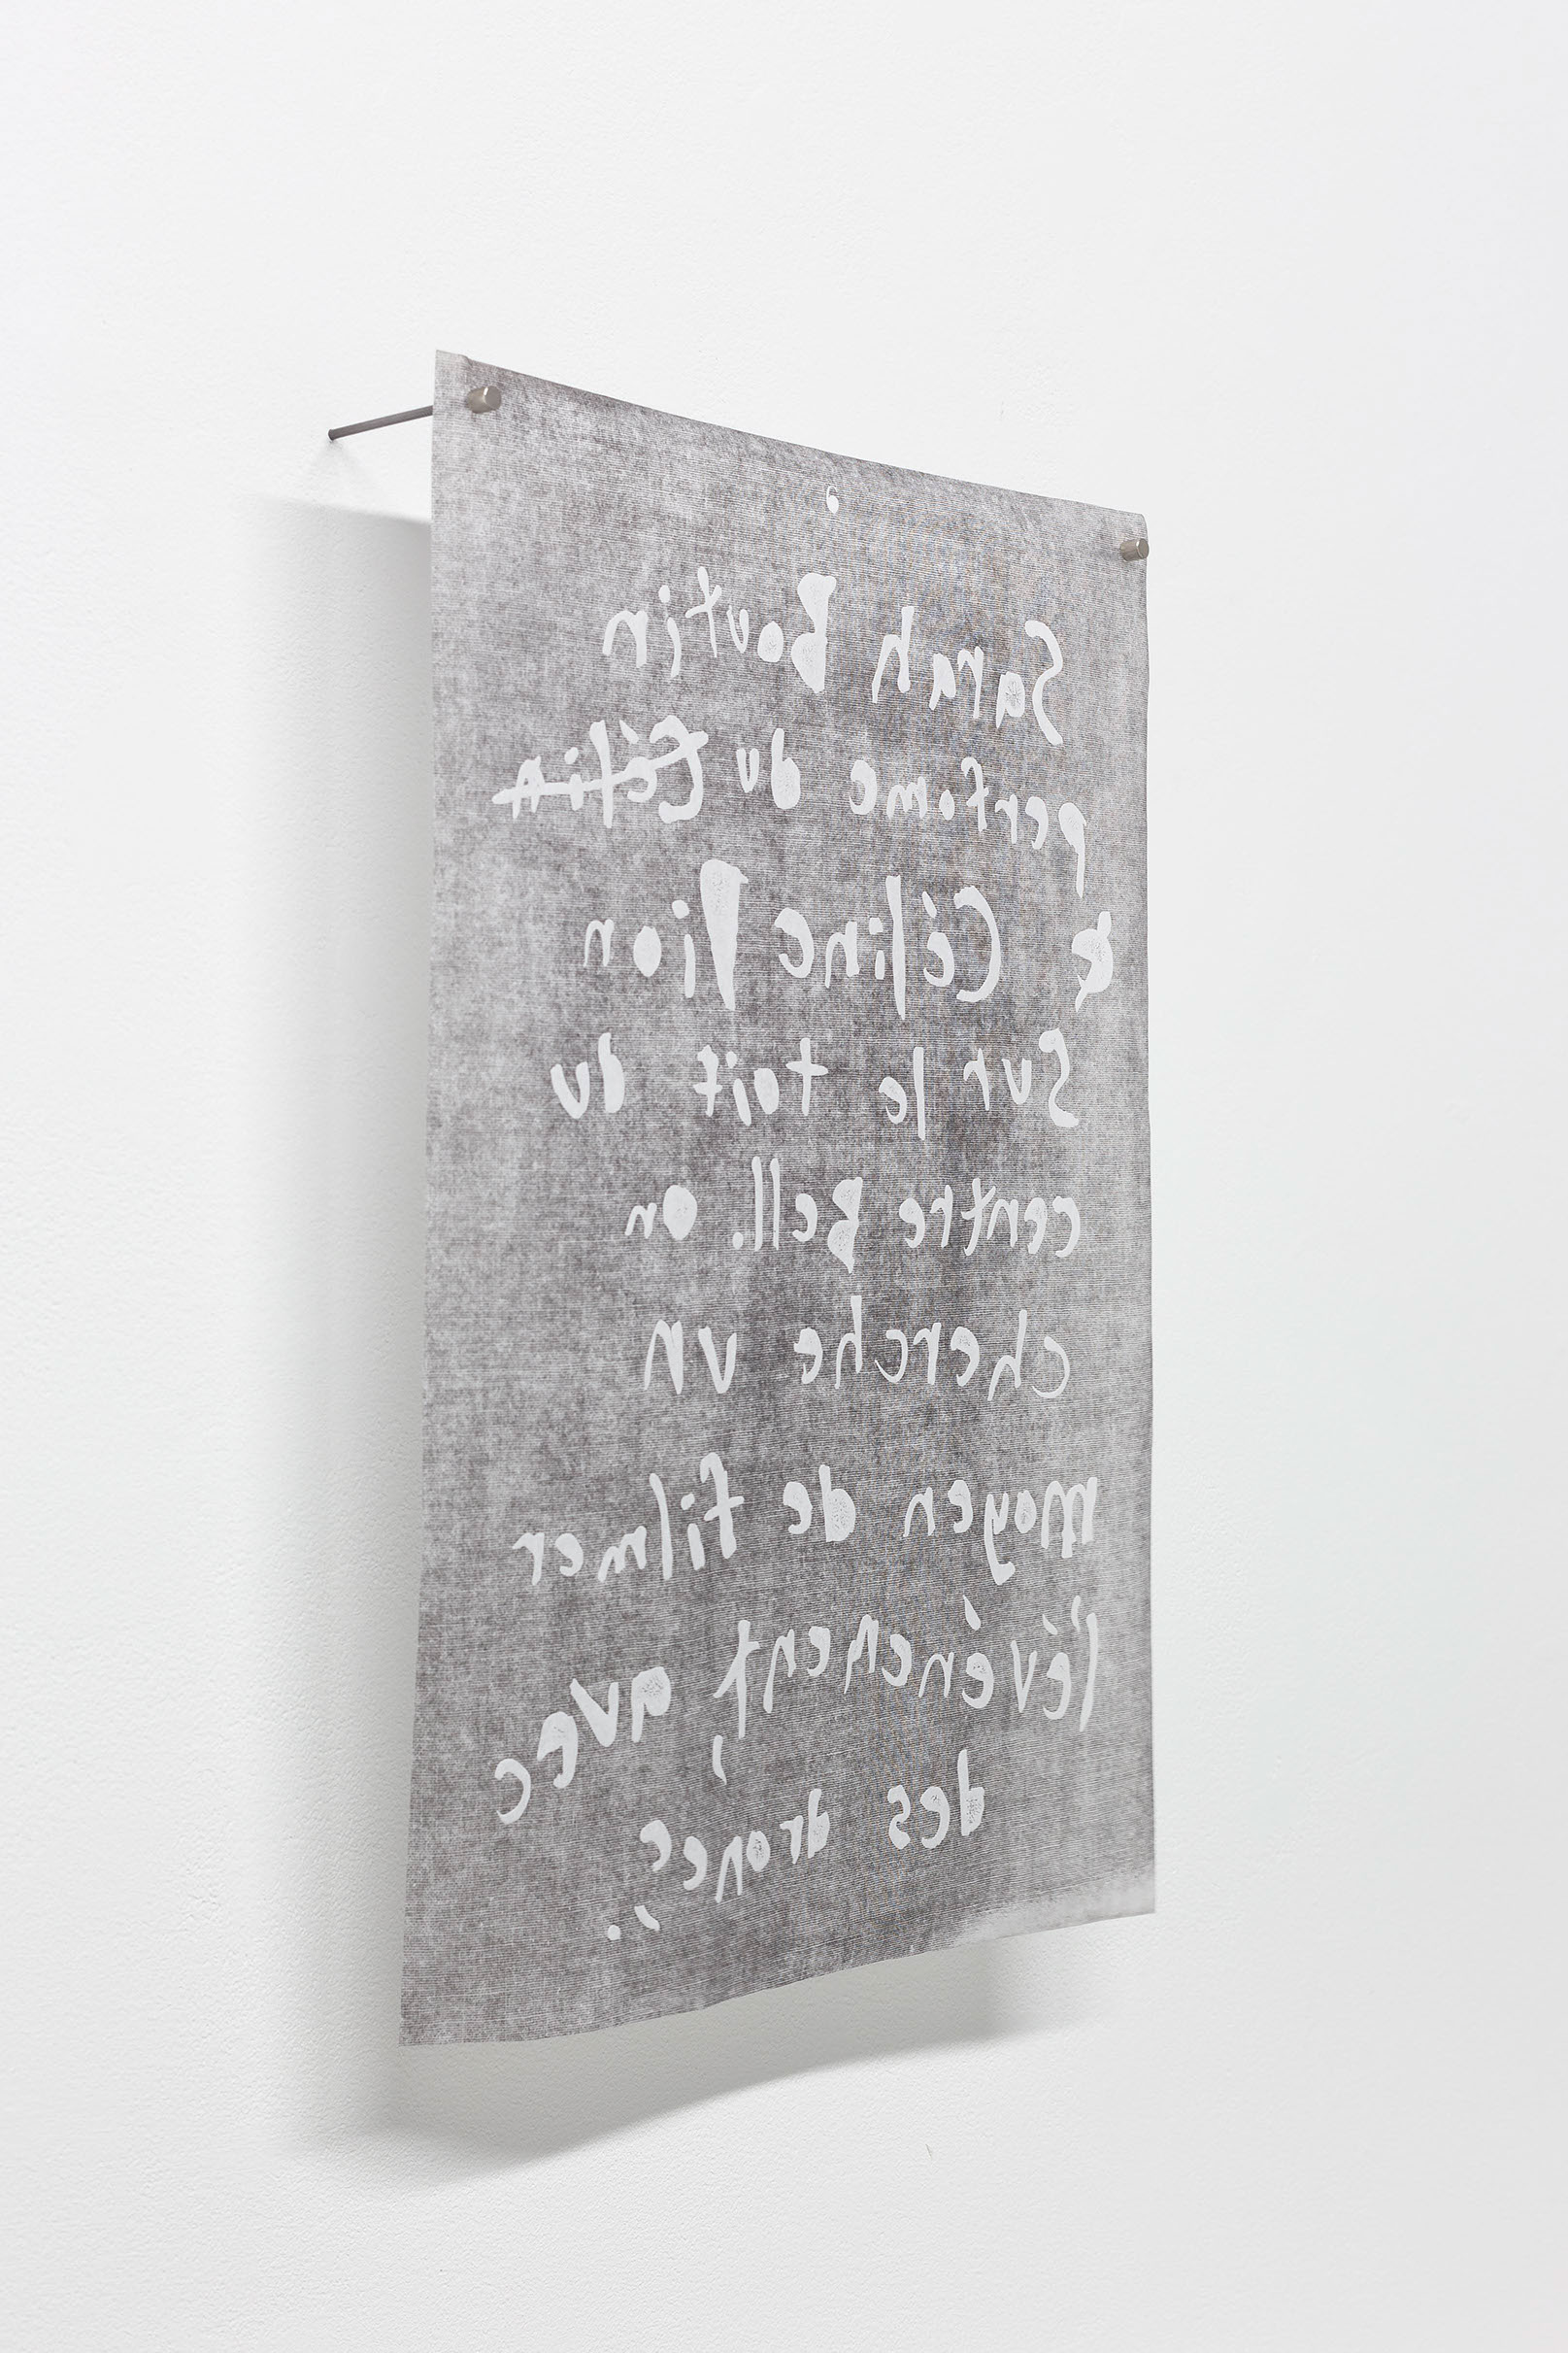 Sarah Boutin
perfome du Célin
& Céline Dion
Sur le toit du
centre Bell. On
cherche un
moyen de filmer
l'événement, avec
des drones